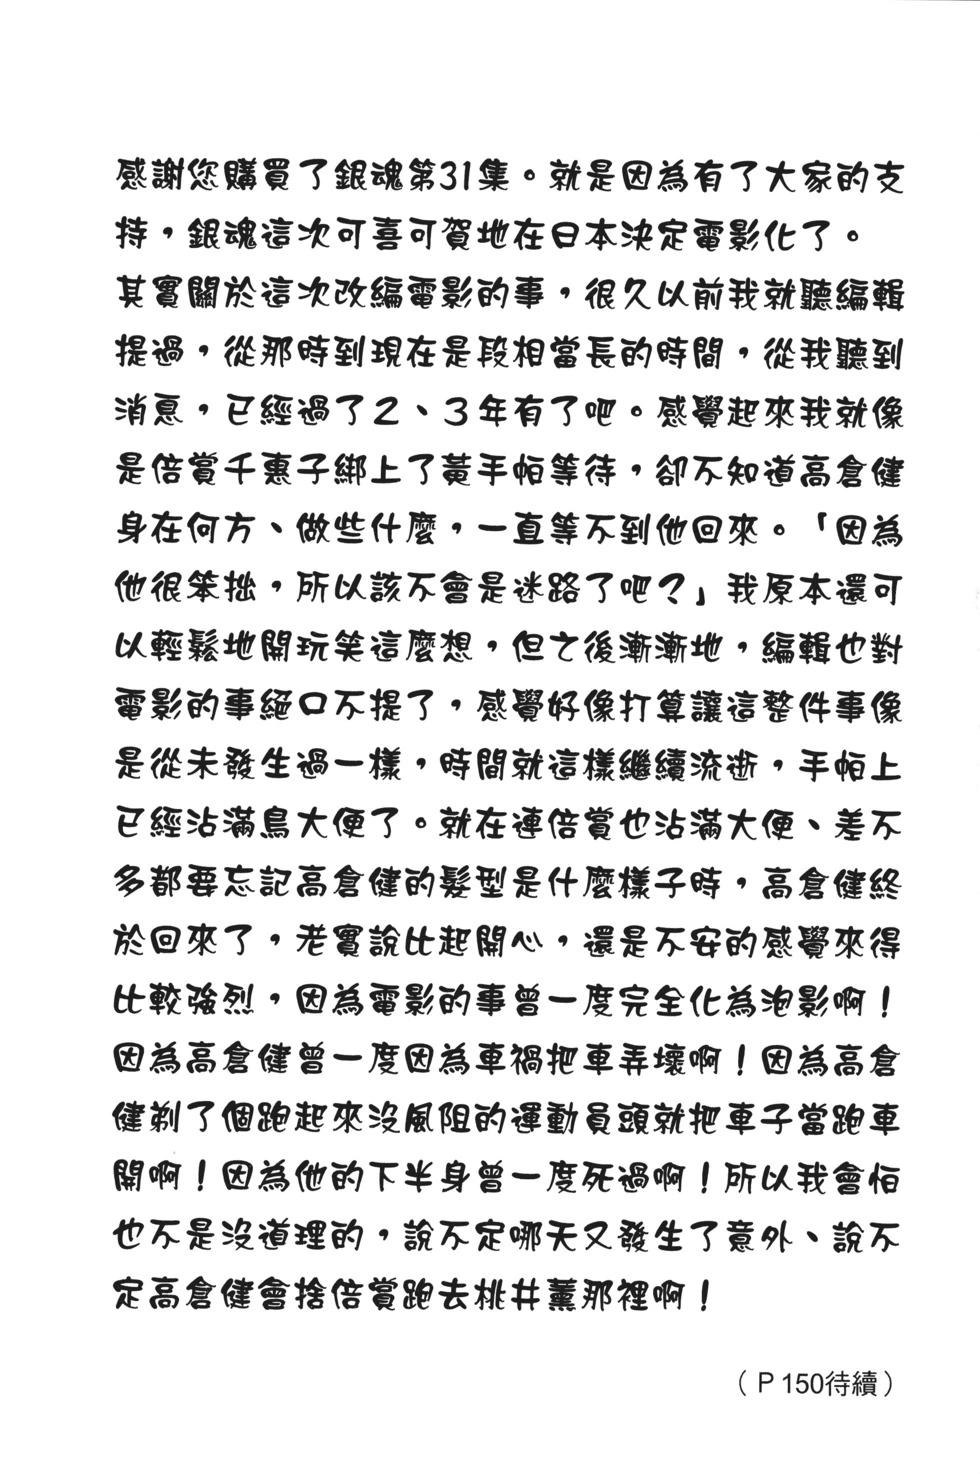 感謝您購買了銀魂第31集。就是因為有了大家的支
持，銀魂這次可喜可賀地在日本決定電影化了。
其實關於這次改編電影的事，很久以前我就聽編輯
提過，從那時到現在是段相當長的時間，從我聽到
消息，已經過了2、3年有了吧。感覺起來我就像
是倍賞千惠子綁上了黃手帕等待，卻不知道高倉健
身在何方、做些什麼，一直等不到他回來。「因為
他很笨拙，所以該不會是迷路了吧？」我原本還可
以輕鬆地開玩笑這麼想，但之後漸漸地，編輯也對
電影的事絕口不提了，感覺好像打算讓這整件事像
是從未發生過一樣，時間就這樣繼續流逝，手帕上
已經沾滿鳥大便了。就在連倍賞也沾滿大便、差不
多都要忘記高倉健的髮型是什麼樣子時，高倉健終
於回來了，老實說比起開心，還是不安的感覺來得
比較強烈，因為電影的事曾一度完全化為泡影啊！
因為高倉健曾一度因為車禍把車弄壞啊！因為高倉
健剃了個跑起來沒風阻的運動員頭就把車子當跑車
開啊！因為他的下半身曾一度死過啊！所以我會怕
也不是沒道理的，說不定哪天又發生了意外、說不
定高倉健會捨倍賞跑去桃井薰那裡啊！
（P150待續）